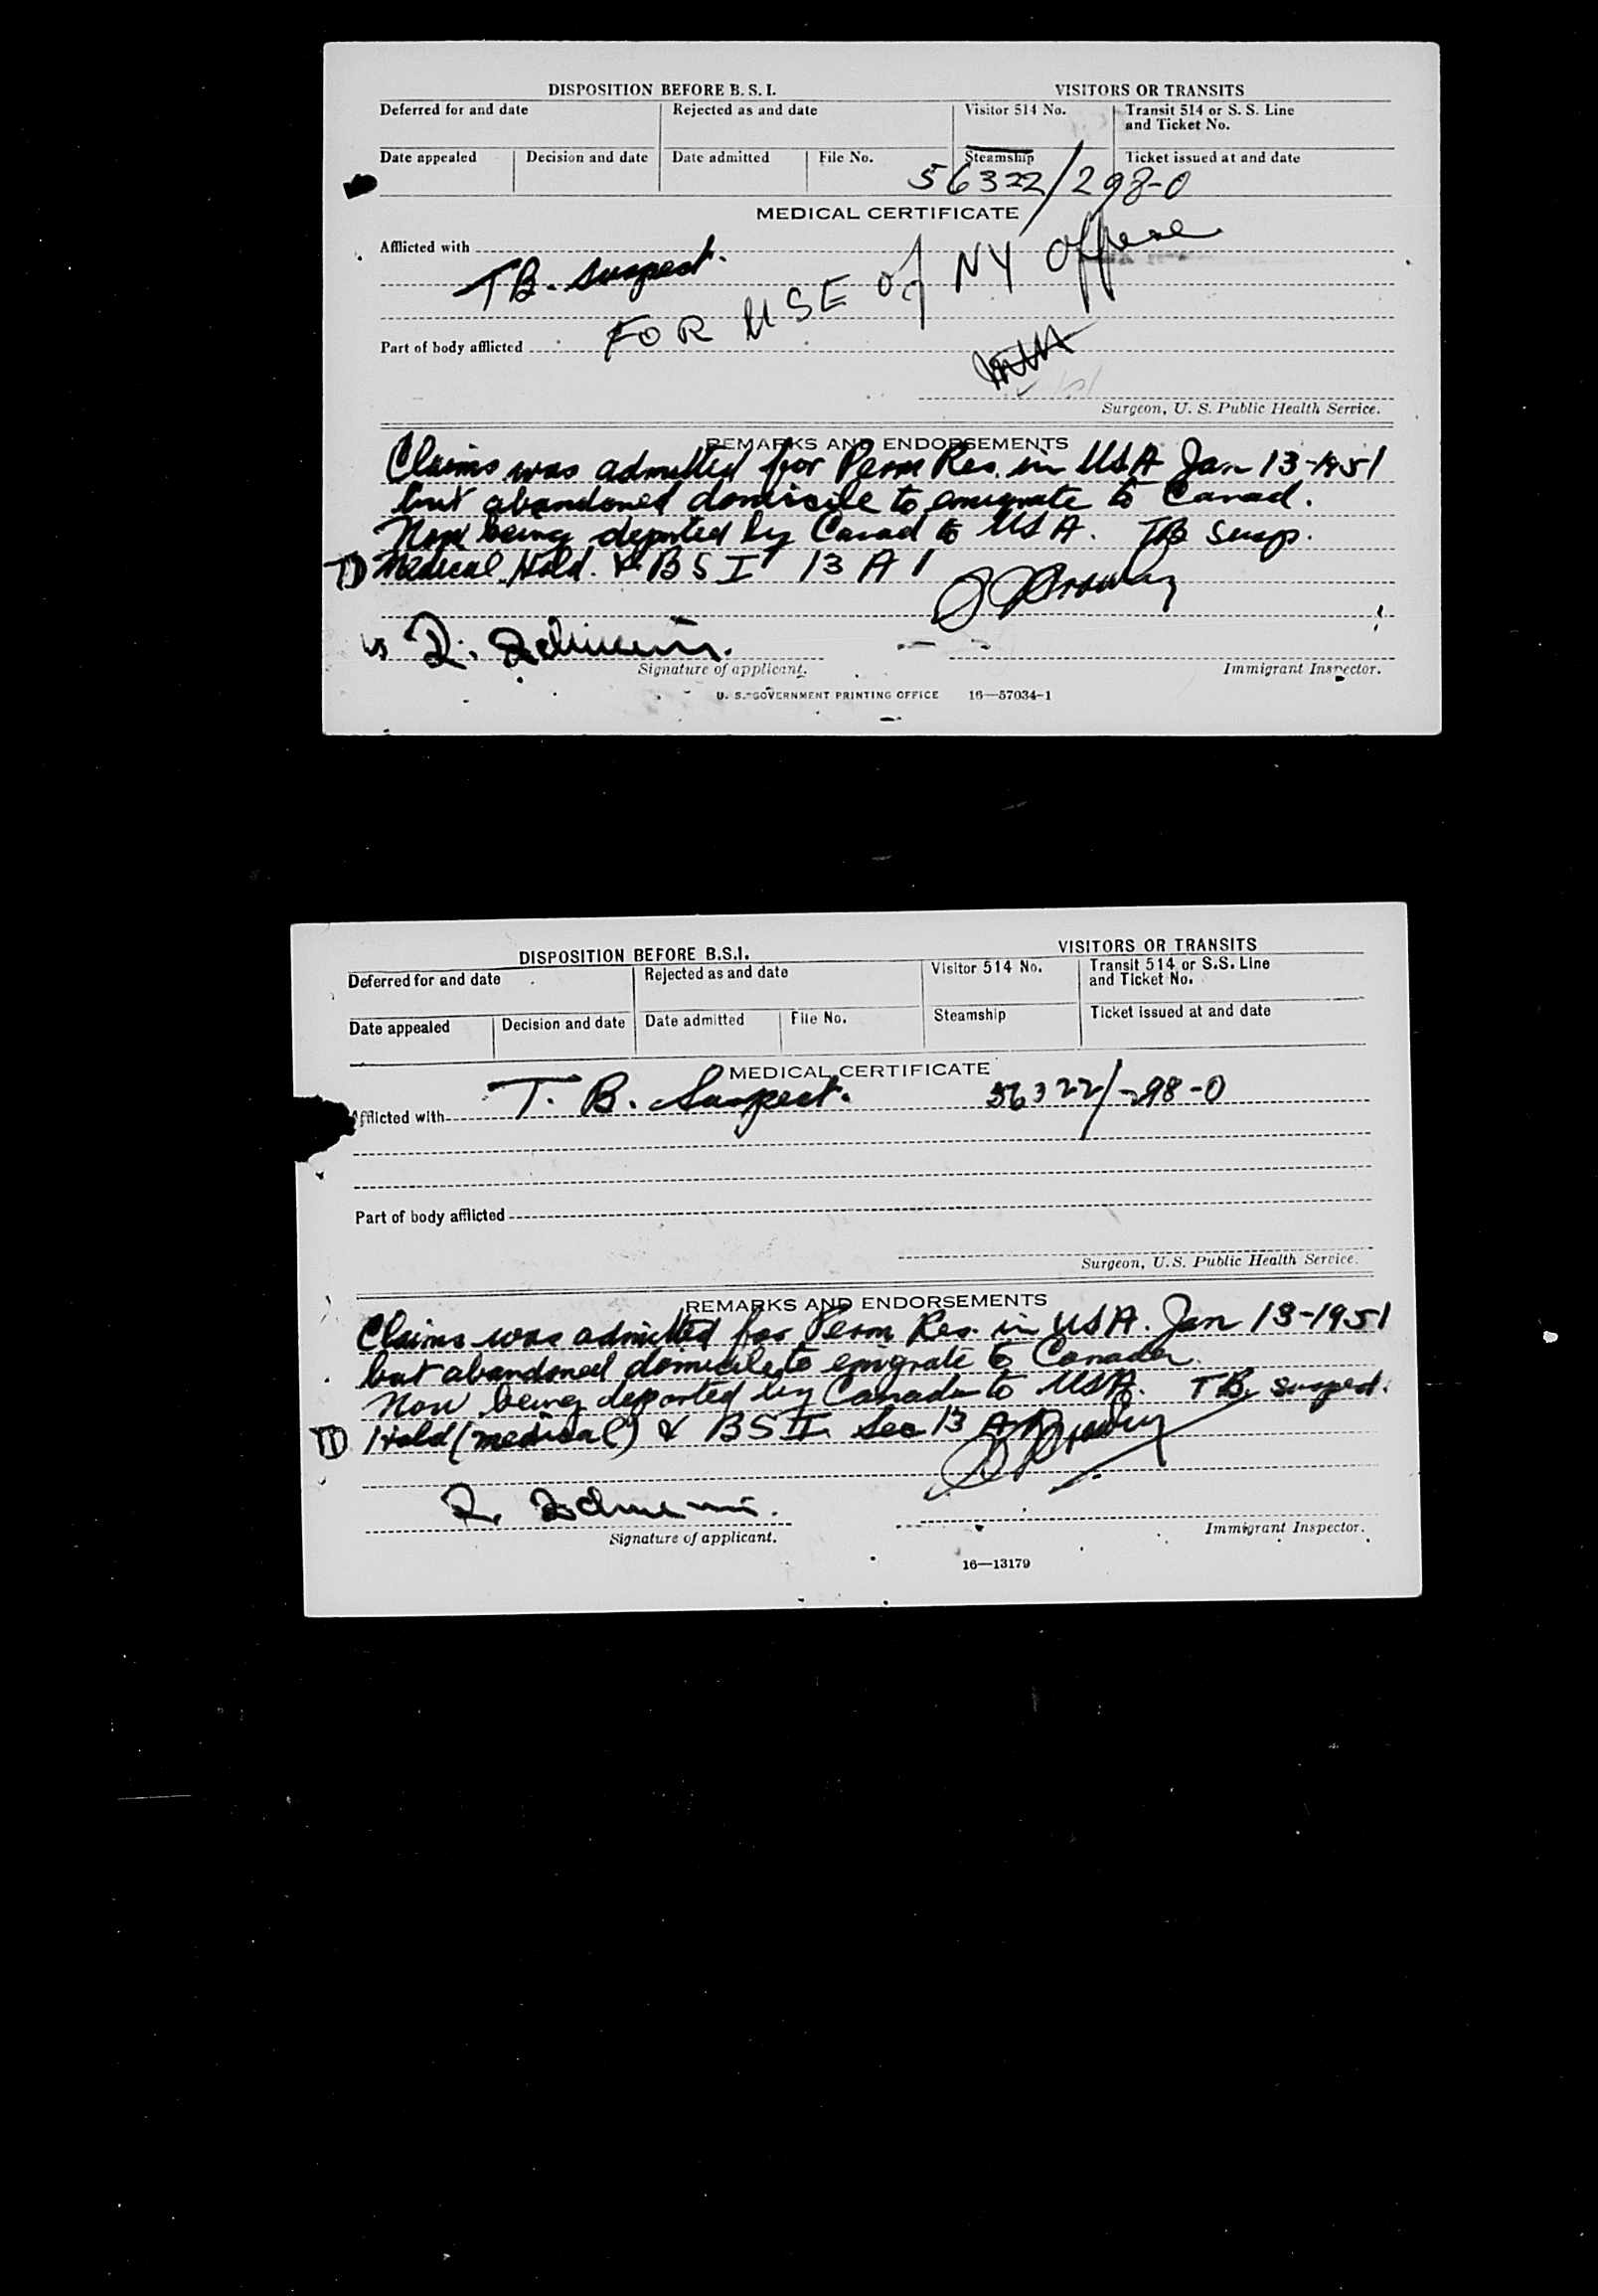 DISPOSITION BEFORE B. S. I. VISITORS OR TRANSITS
Deferred for and date Rejected as and date Visitor 514 No. Transit 514 or S. S. Line
and Ticket No.
Date appealed Decision and date Date admitted File No. Steamship Ticket issued at and date
56322/298-0
MEDICAL CERTIFICATE
Afflicted with
TB. Suspect.
FOR USE of NY Office
Part of body afflicted
Surgeon, U. S. Public Health Service.
REMARKS AND ENDORSEMENTS
Claims was admitted for Perm Res. in USA Jan 13-1951
but abandoned domicile to emigrate to Canad.
Now being deported by Canad to USA. TB Susp.
Medical Hold. & BSI 13 A 1
Signature of applicant. Immigrant Inspector.
U. S. GOVERNMENT PRINTING OFFICE 16—57034-1
DISPOSITION BEFORE B.S.I. VISITORS OR TRANSITS
Deferred for and date Rejected as and date Visitor 514 No. Transit 514 or S.S. Line
and Ticket No.
Date appealed Decision and date Date admitted File No. Steamship Ticket issued at and date
MEDICAL CERTIFICATE
Afflicted with T. B. Suspect. 56322/298-0
Part of body afflicted
Surgeon, U.S. Public Health Service.
REMARKS AND ENDORSEMENTS
Claims was admitted for Perm Res. in USA. Jan 13-1951
but abandoned domicile to emigrate to Canada.
Now being deported by Canada to USA. TB. suspect.
Hold (medical) & BSI Sec 13 A
Signature of applicant. Immigrant Inspector.
16—13179